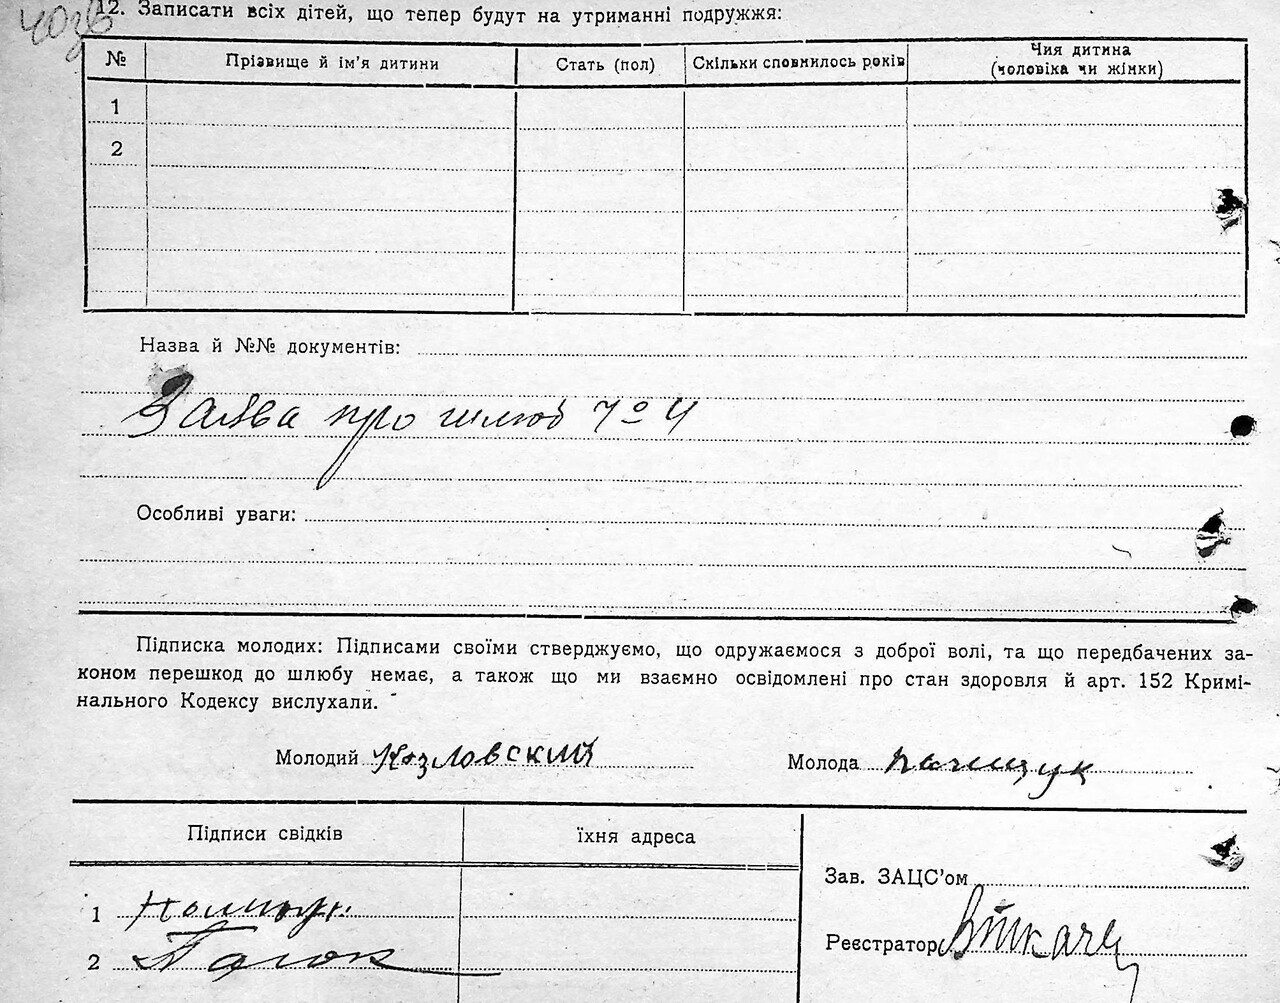 12. Записати всіх дітей, що тепер будут на утриманні подружжя:
№ Прізвище й ім'я дитини Стать (пол) Скільки сповнилось років Чия дитина
(чоловіка чи жінки)
1
2
Назва й №№ документів:
Заява про шлюб № 4
Особливі уваги:
Підписка молодих: Підписами своїми стверджуємо, що одружаємося з доброї волі, та що передбачених за-
коном перешкод до шлюбу немає, а також що ми взаємно освідомлені про стан здоровля й арт. 152 Кримі-
нального Кодексу вислухали.
Молодий Козловский Молода
Підписи свідків їхня адреса
Зав. ЗАЦС'ом
1
Реєстратор
2